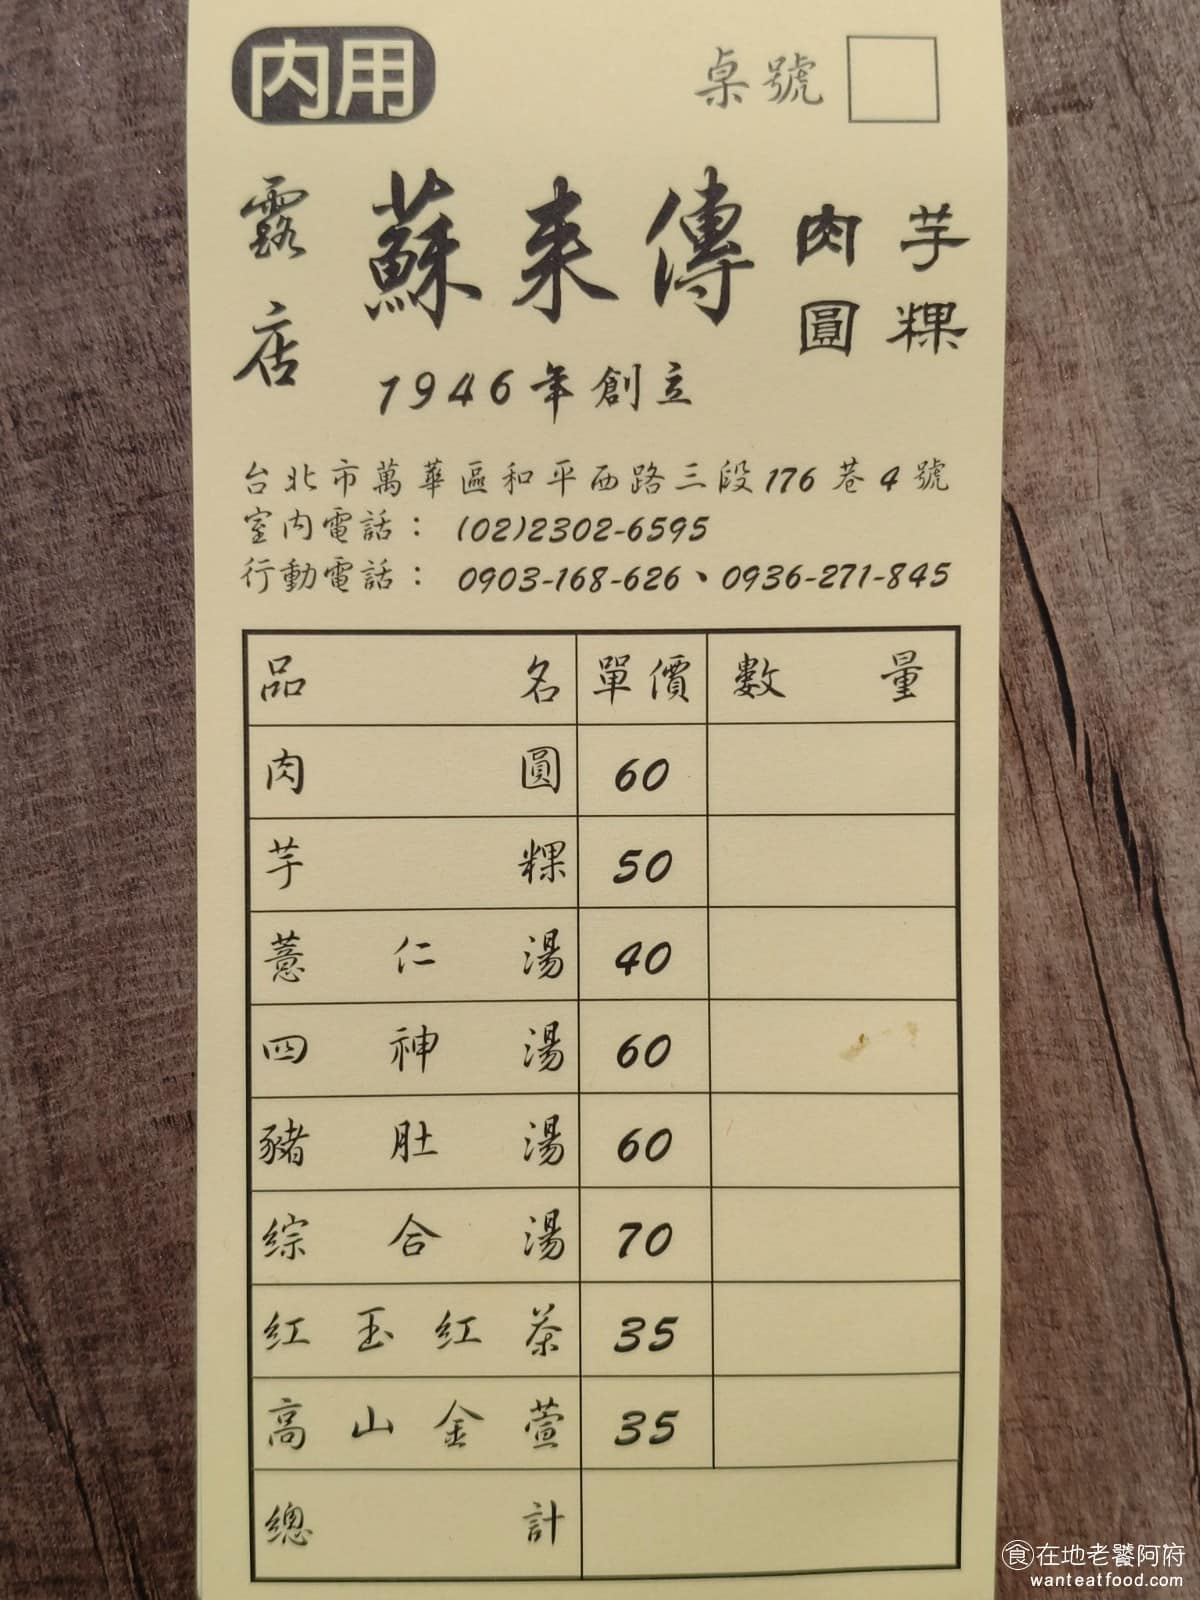 內用
桌號
露店 蘇來傳 肉圓 芋粿
1946年創立
台北市萬華區和平西路三段176巷4號
室內電話：(02)2302-6595
行動電話：0903-168-626、0936-271-845
品名 單價 數量
肉圓 60
芋粿 50
薏仁湯 40
四神湯 60
豬肚湯 60
綜合湯 70
紅玉紅茶 35
高山金萱 35
總計
食在地老饕阿府
wanteatfood.com